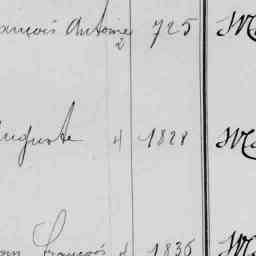 ançois Antoine 2 725 M
uguste 4 1828 Ma
François 4 1836 M